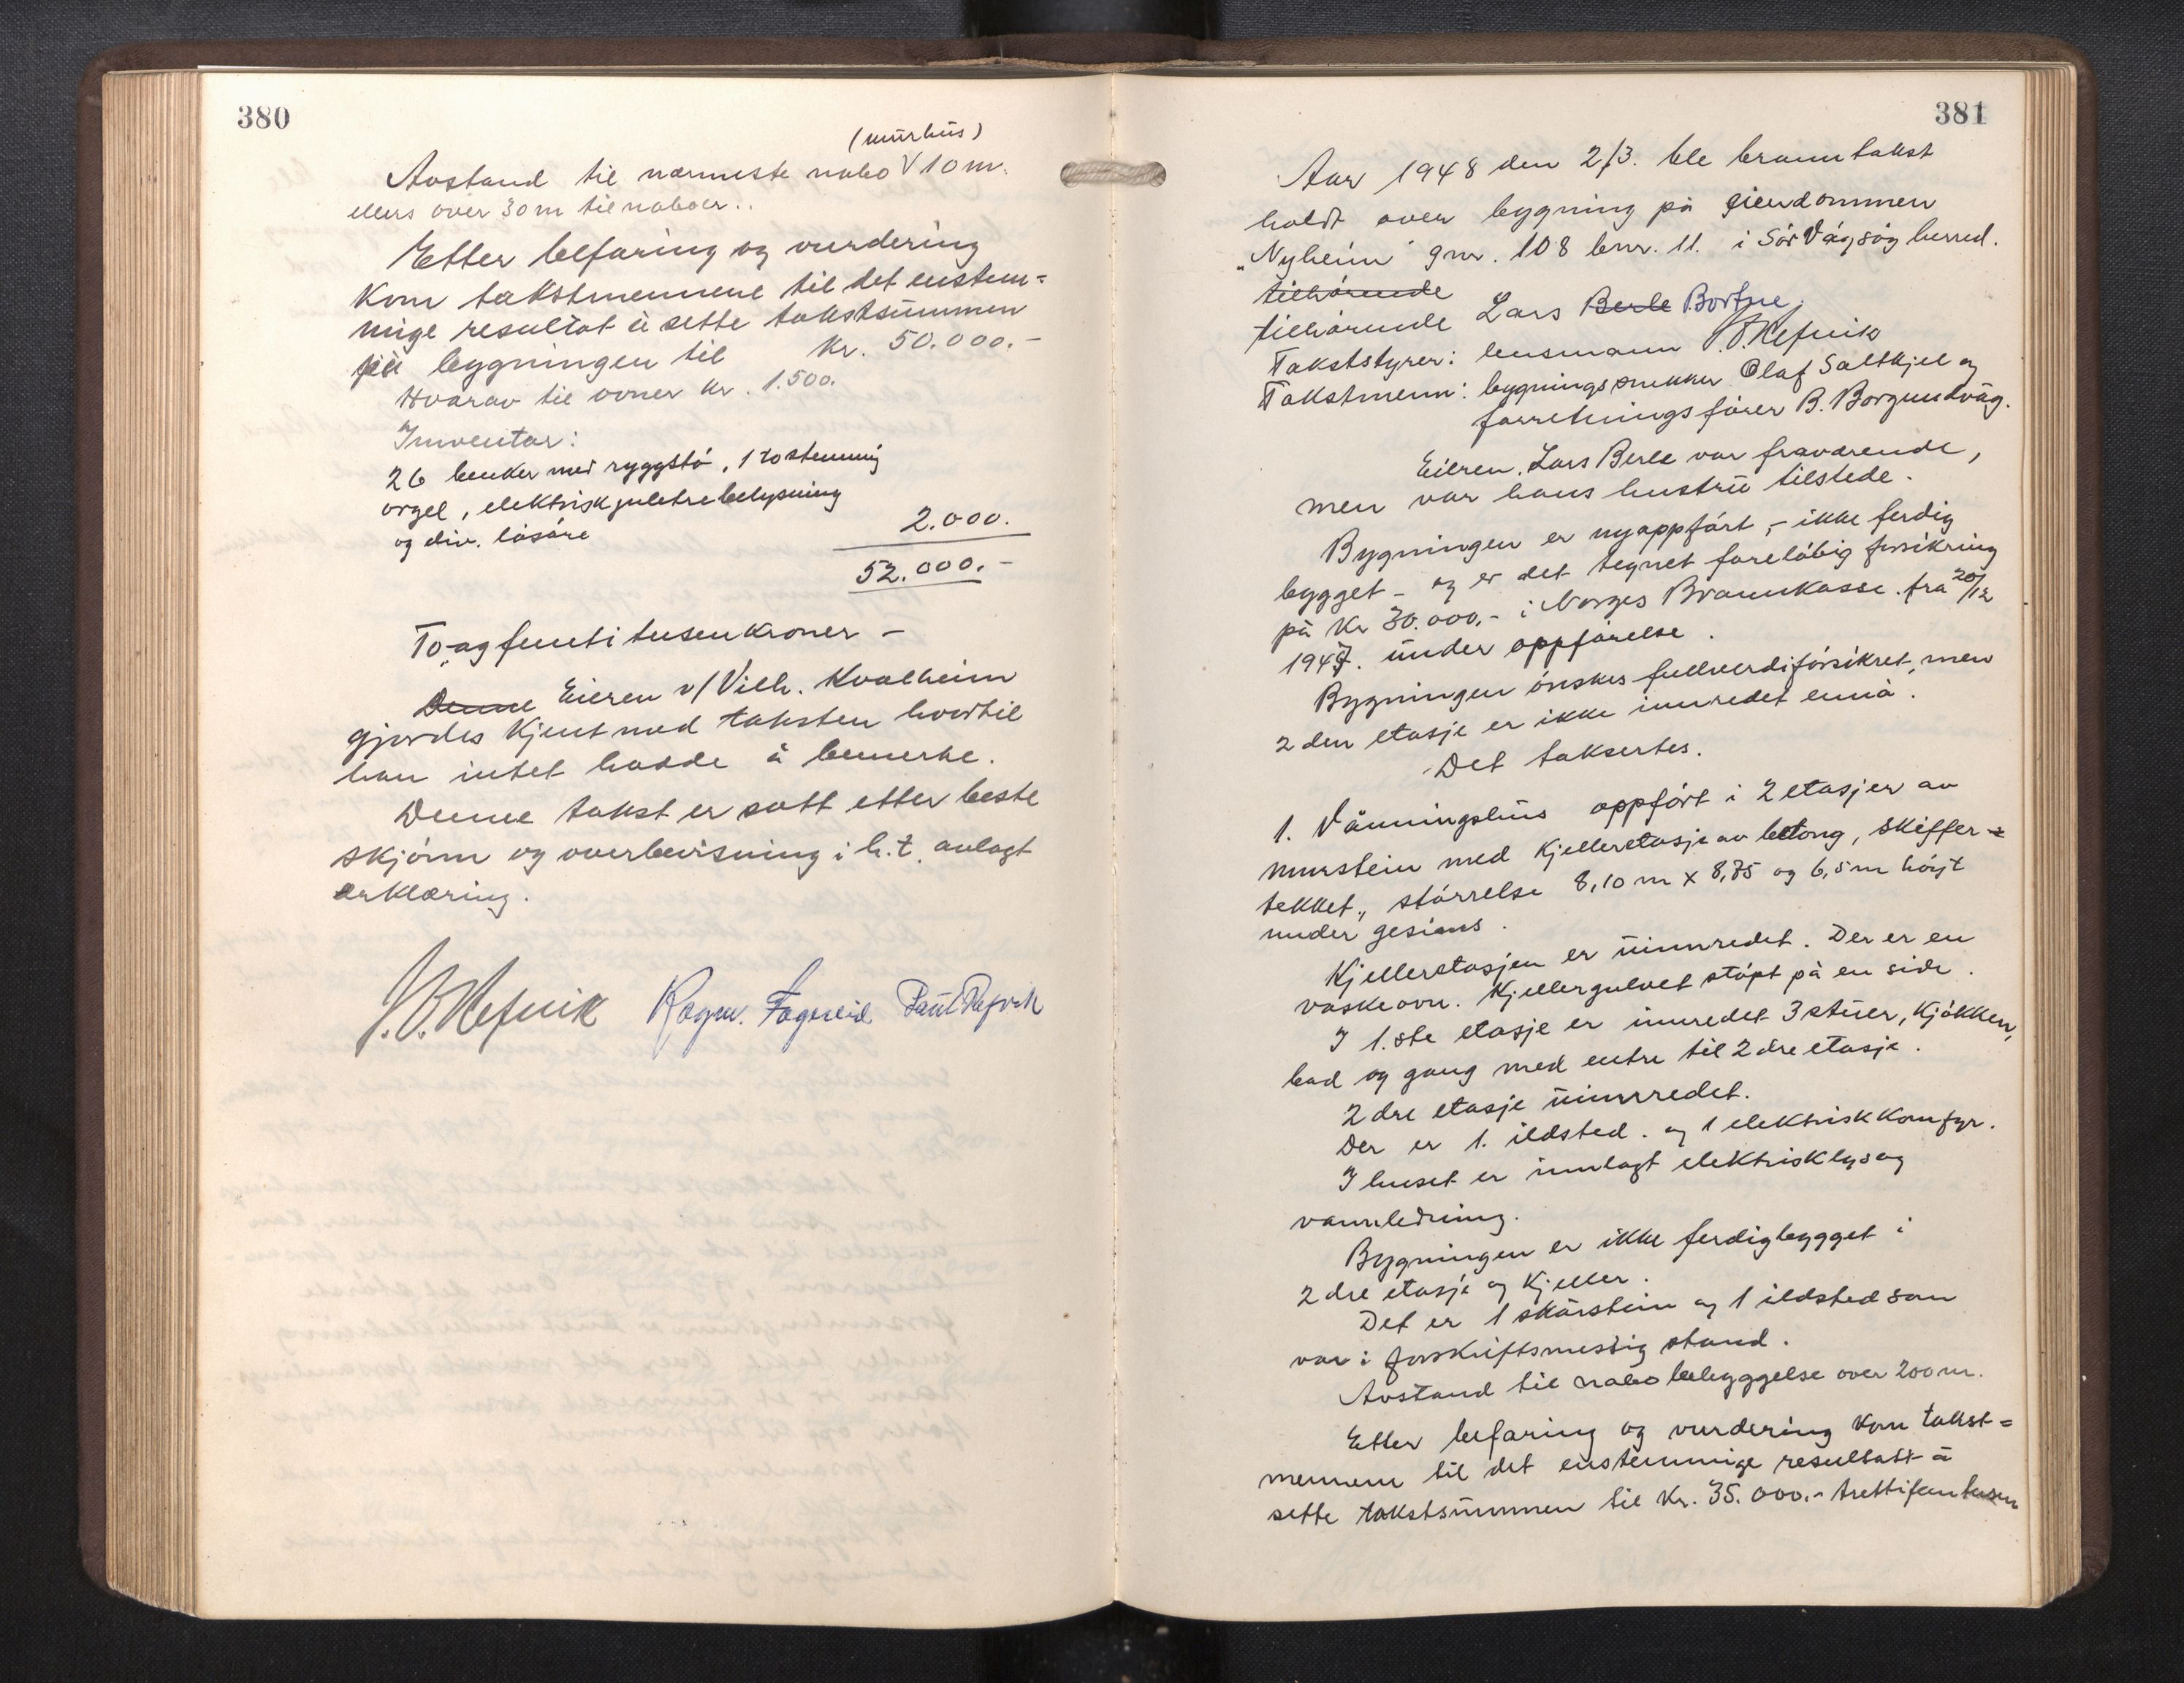 380
(murhus)
Avstand til nærmeste nabo V 10 m.
ellers over 30 m til naboer..
Etter befaring og vurdering
kom takstmennene til det enstem=
mige resultat å sette takstsummen
på bygningen til kr. 50.000.-
Hvorav til ovner kr. 1.500.
Inventar:
26 benker med ryggstö, 1 rostemmig
orgel, elektrisk juletrebelysning
og div. lösöre 2.000.
52.000.-
To-og femti tusen kroner -
Denne Eieren v/ Vilh. Kvalheim
gjordes kjent med taksten hvortil
han intet hadde å bemerke.
Denne takst er satt etter beste
skjönn og overbevisning i h.t. avlagt
erklæring.
J.O. Refvik Ragnv. Fagereid Paul Refvik
381
Aar 1948 den 2/3. ble branntakst
holdt over bygning på eiendommen
"Nyheim" gnr. 108 bnr. 11. i Sör Vågsöy herred.
tilhörende
tilhörende Lars Berle Bortne.
Takststyrer: lensmann J.O. Refvik
Takstmenn: bygningssnekker Olaf Saltkjel og
forretningsförer B. Borgundvåg.
Eieren, Lars Berle var fraværende,
men var hans hustru tilstede.
Bygningen er nyoppfört, - ikke ferdig
bygget - og er det tegnet foreløbig forsikring
på kr 30.000,- i Norges Brannkasse. fra 20/12
1947. under oppförelse.
Bygningen önskes fullverdiforsikret, men
2 den etasje er ikke innredet ennå.
Det taksertes.
1. Våningshus oppfört i 2 etasjer av
murstein med kjelleretasje av betong, skiffer=
tekket, störrelse 8,10 m x 8,75 og 6,5 m höyt
under gesims.
Kjelleretasjen er uinnredet. Der er en
vaskeovn. Kjellergulvet stöpt på en side.
I 1.ste etasje er innredet 3 stuer, kjökken,
bad og gang med entre til 2 dre etasje.
2 dre etasje uinnredet.
Der er 1. ildsted. og 1 elektrisk komfyr.
I huset er innlagt elektrisk lys og
vannledning.
Bygningen er ikke ferdigbygget i
2 dre etasje og kjeller.
Det er 1 skårstein og 1 ildsted som
var i forskriftsmessig stand.
Avstand til nabobebyggelse over 200 m.
Etter befaring og vurdering kom takst=
mennene til det enstemmige resultatt å
sette takstsummen til kr. 35.000.- trettifem tusen